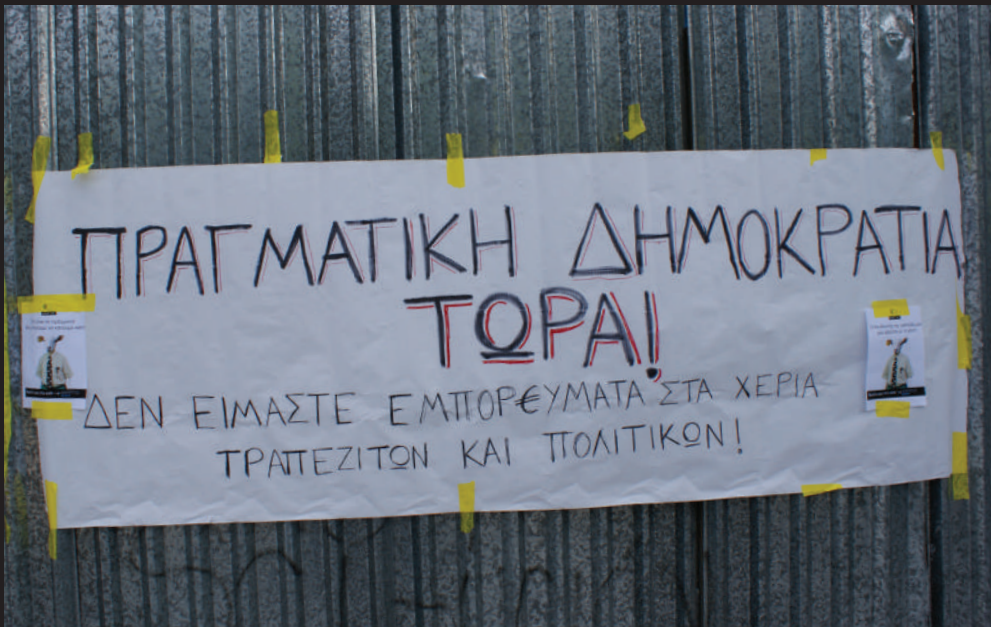 ΠΡΑΓΜΑΤΙΚΗ ΔΗΜΟΚΡΑΤΙΑ
ΤΩΡΑ!
ΔΕΝ ΕΙΜΑΣΤΕ ΕΜΠΟΡ€ΥΜΑΤΑ ΣΤΑ ΧΕΡΙΑ
ΤΡΑΠΕΖΙΤΩΝ ΚΑΙ ΠΟΛΙΤΙΚΩΝ!